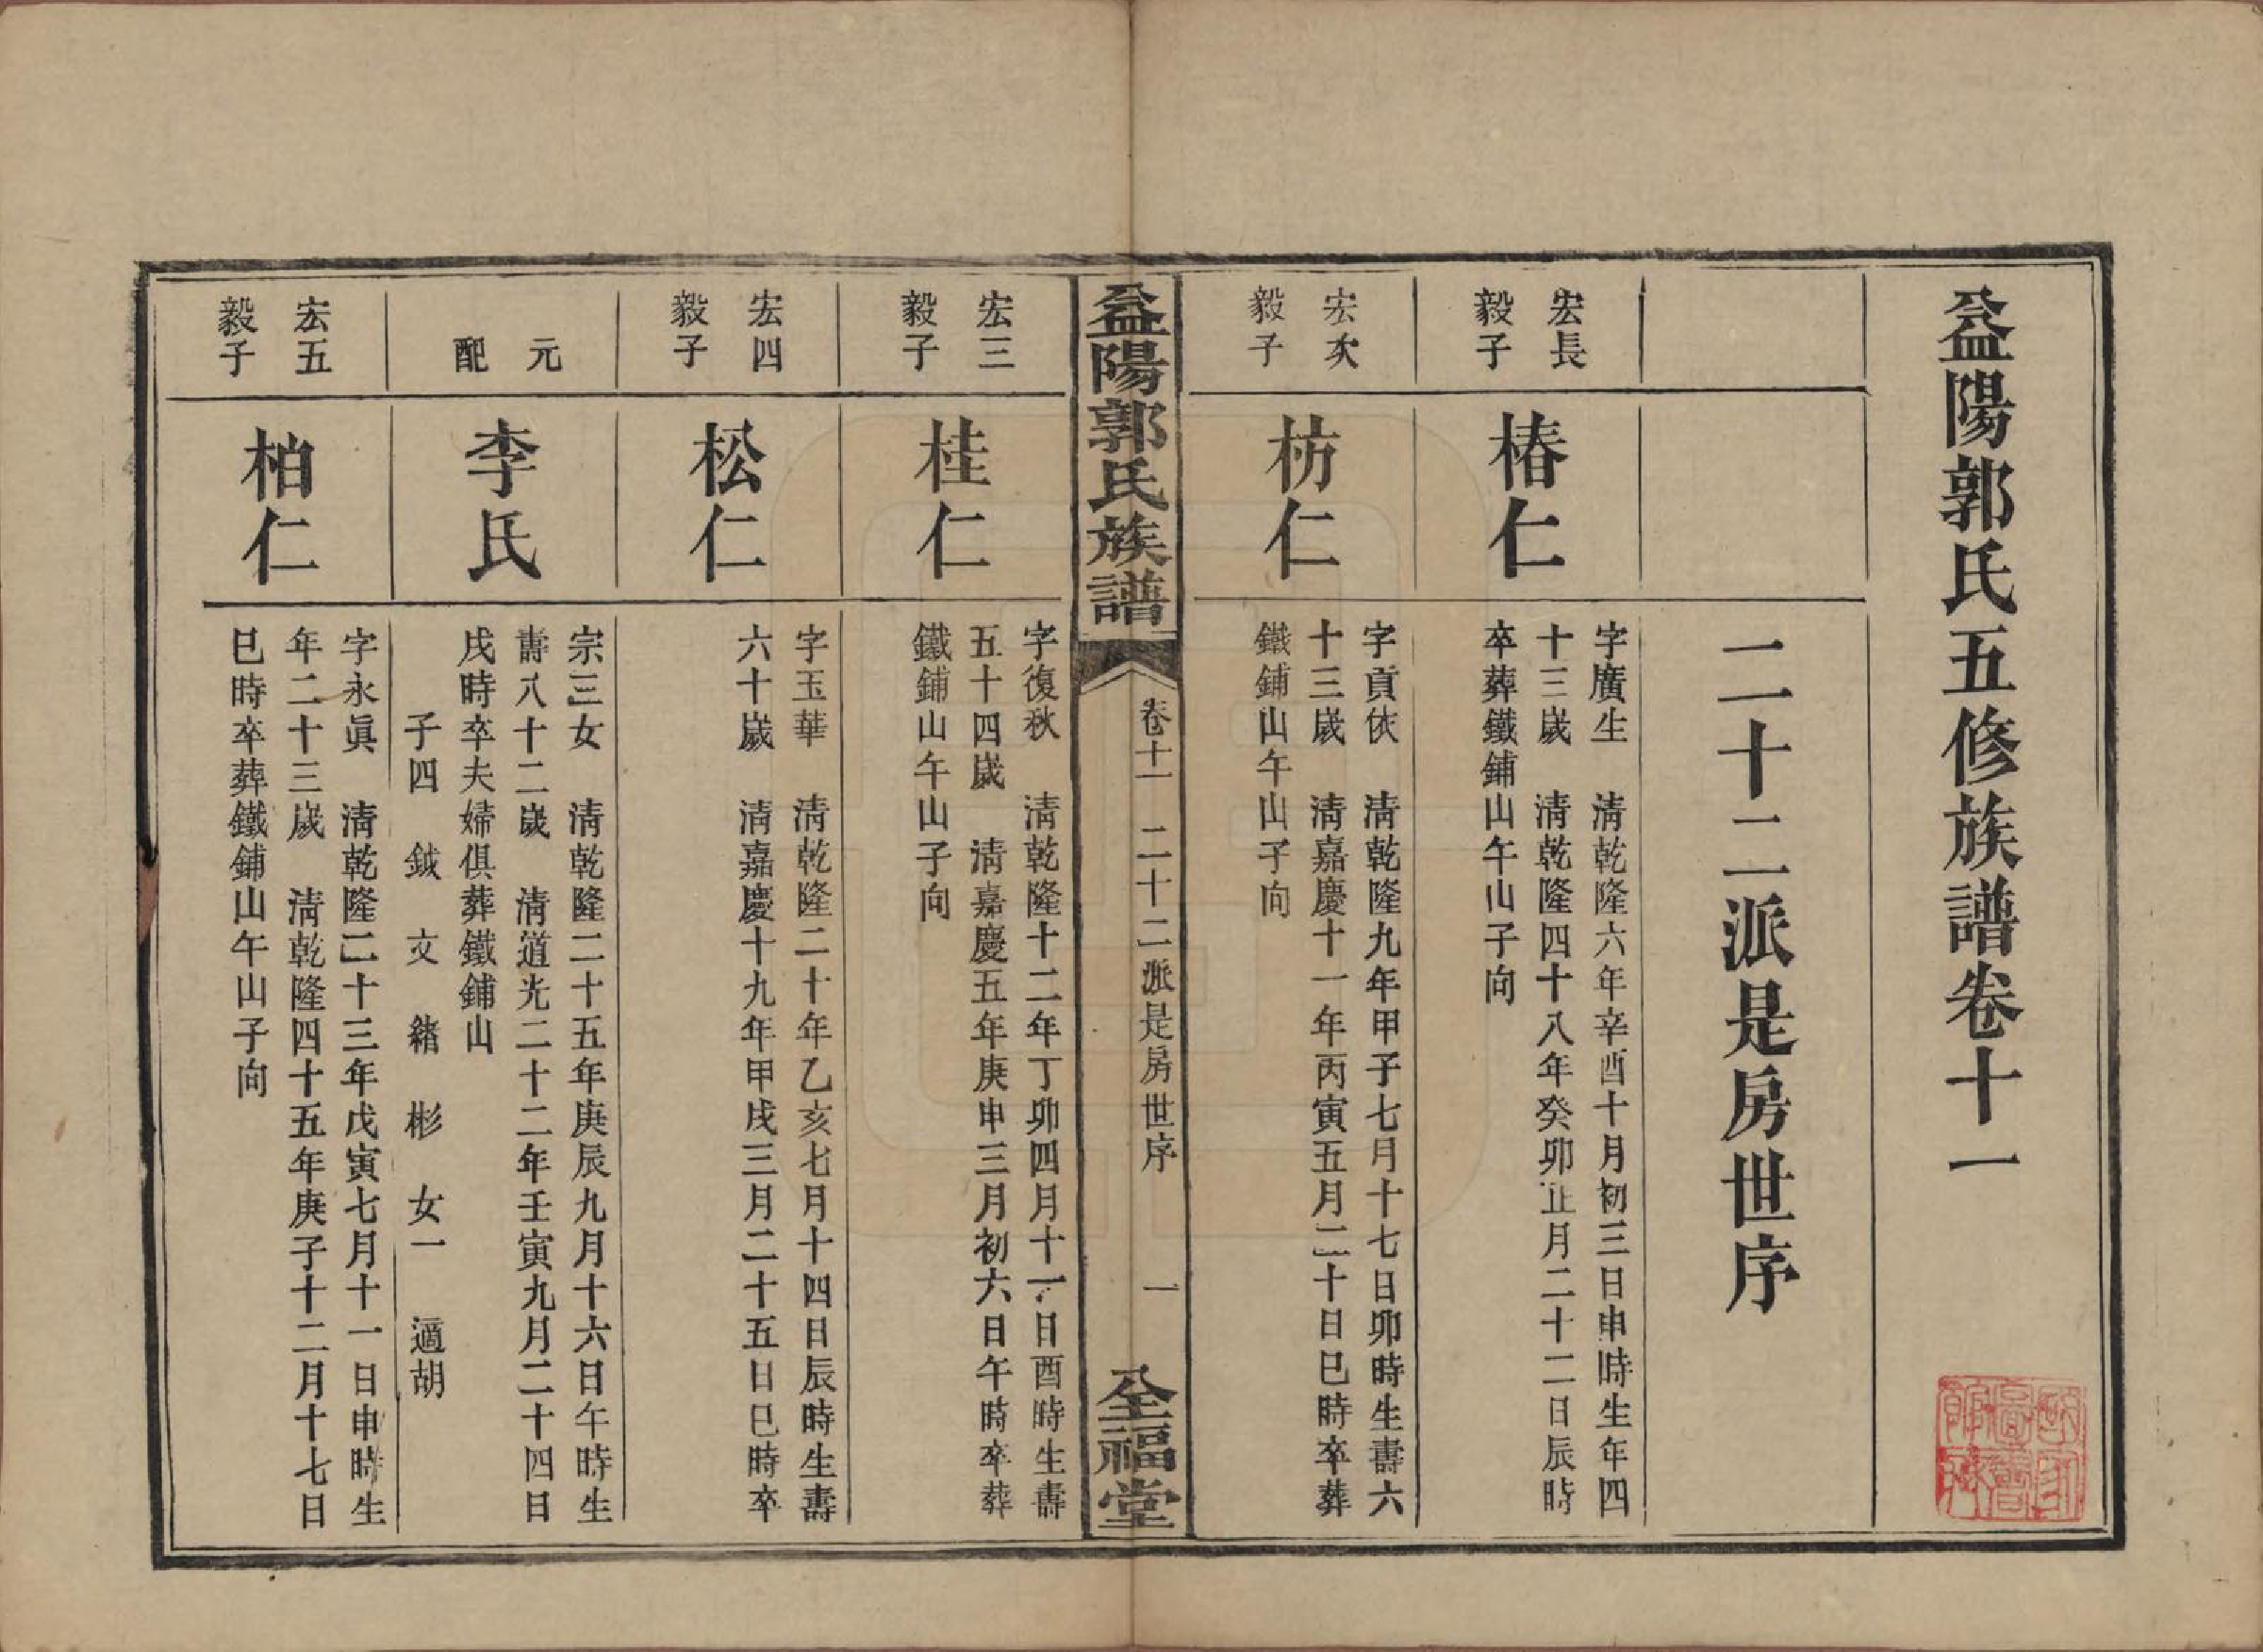 益陽郭氏五修族譜卷十一
二十二派是房世序
宏長
毅子
椿仁
字廣生　清乾隆六年辛酉十月初三日申時生年四
十三歲　清乾隆四十八年癸卯正月二十二日辰時
卒葬鐵鋪山午山子向
宏次
毅子
枋仁
字貢依　清乾隆九年甲子七月十七日卯時生壽六
十三歲　清嘉慶十一年丙寅五月二十日巳時卒葬
鐵鋪山午山子向
益陽郭氏族譜
卷十一　二十二派是房世序　一
全福堂
宏三
毅子
桂仁
字復秋　清乾隆十二年丁卯四月十一日酉時生壽
五十四歲　清嘉慶五年庚申三月初六日午時卒葬
鐵鋪山午山子向
宏四
毅子
松仁
字玉華　清乾隆二十年乙亥七月十四日辰時生壽
六十歲　清嘉慶十九年甲戌三月二十五日巳時卒
元
配
李氏
宗三女　清乾隆二十五年庚辰九月十六日午時生
壽八十二歲　清道光二十二年壬寅九月二十四日
戌時卒夫婦俱葬鐵鋪山
子四　鉞　文　緒　彬　女一　適胡
宏五
毅子
柏仁
字永眞　清乾隆二十三年戊寅七月十一日申時生
年二十三歲　清乾隆四十五年庚子十二月十七日
巳時卒葬鐵鋪山午山子向